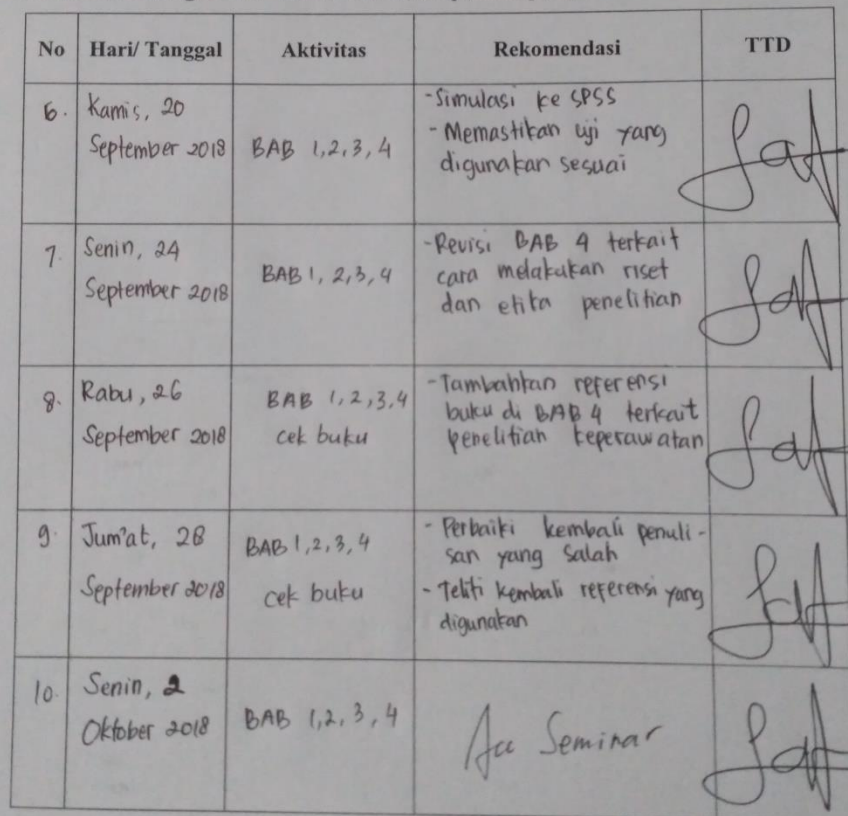 No Hari/ Tanggal Aktivitas Rekomendasi TTD
6. Kamis, 20
September 2018
BAB 1,2,3,4
-Simulasi ke SPSS
- Memastikan uji yang
digunakan sesuai
7. Senin, 24
September 2018
BAB 1, 2,3,4
-Revisi BAB 4 terkait
cara melakukan riset
dan etika penelitian
8. Rabu, 26
September 2018
BAB 1,2,3,4
cek buku
-Tambahkan referensi
buku di BAB 4 terkait
penelitian keperawatan
9. Jum'at, 28
September 2018
BAB 1,2,3,4
cek buku
- Perbaiki kembali penuli-
san yang salah
- Teliti kembali referensi yang
digunakan
10. Senin, 2
Oktober 2018
BAB 1,2,3,4
Acc Seminar